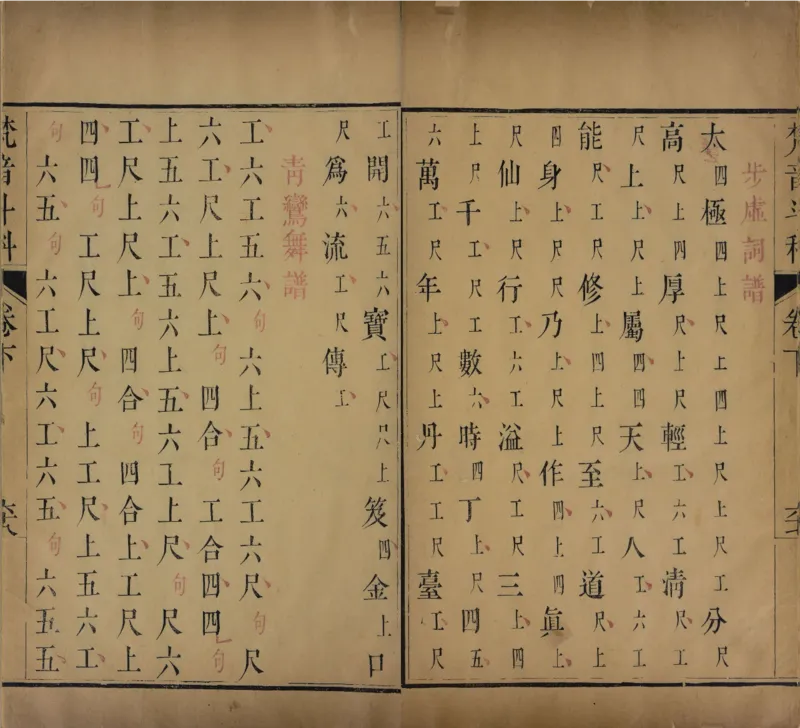 梵音斗科 卷下
步虛詞譜
太四極四上尺上四上尺上尺工分尺
高尺上四厚尺上尺輕工六工清尺工
尺上上尺上屬四四天上尺人工六工
能尺工尺修上四上尺至六工道尺上
四身上尺乃上尺上作四上四眞上
尺仙上尺行工六工溢尺工尺三上四
上尺千工尺工數六時四丁上尺四五
六萬工尺年上尺上丹工工尺臺工尺
工開六五六寶工尺尺上笈四金上口
尺爲六流工尺傳工
青鸞舞譜
工六工五六句六上五六工六尺句尺
六工尺上尺上句四合句工合四四句
上五六工五六上五六工上尺句尺六
工尺上尺上句四合句四合上工尺上
四四句工尺上尺句上工尺上五六工
句六五句六工尺六工六五句六五五
梵音斗科 卷下